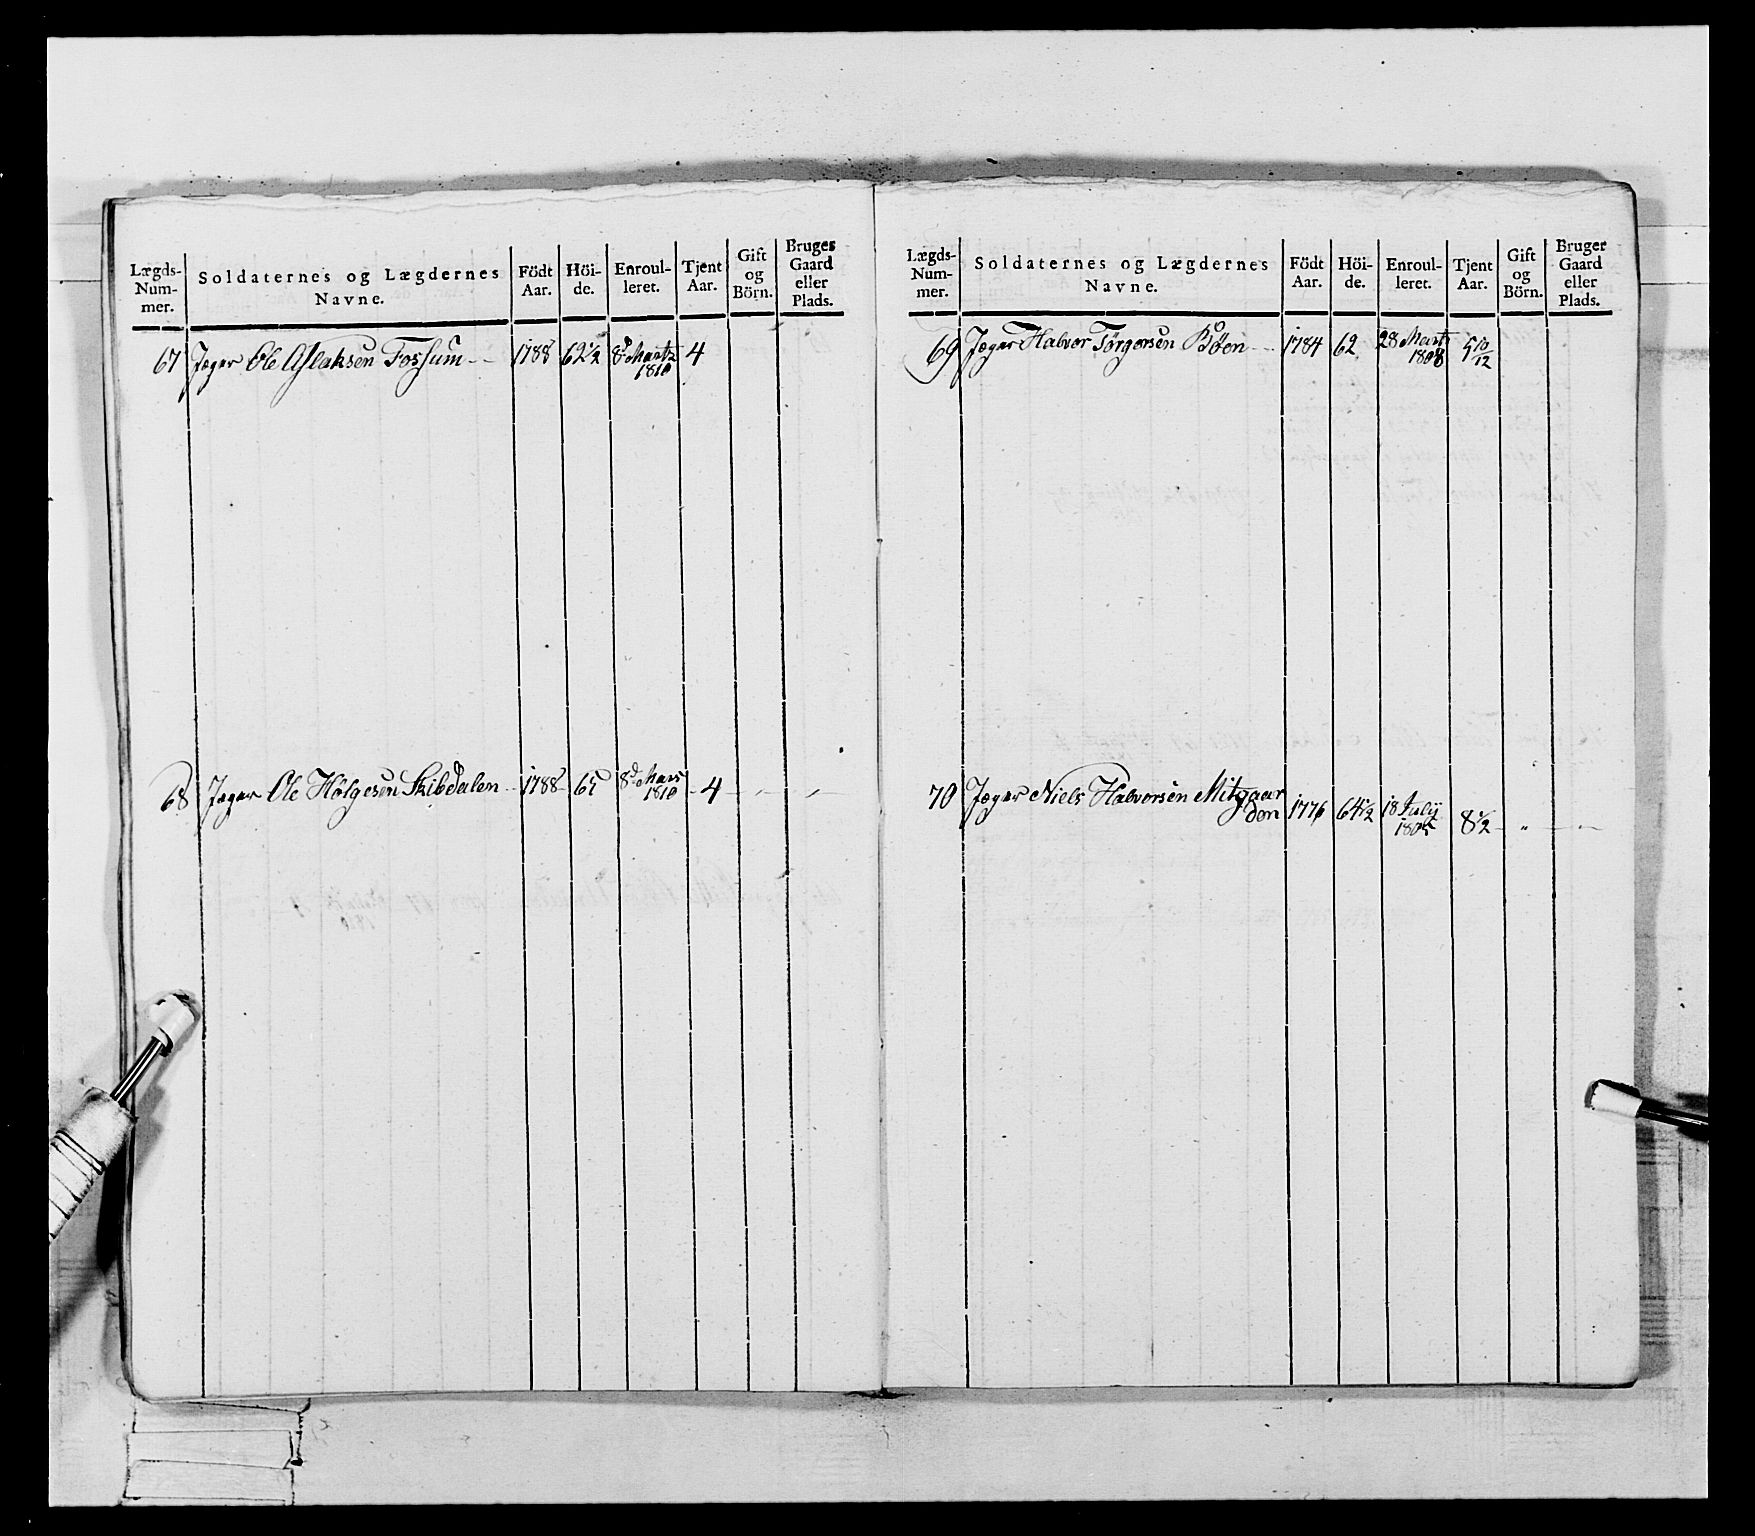 Lægds-Num-mer. Soldaternes og Lægdernes Navne. Födt Aar. Höi-de. Enroul-leret. Tjent Aar. Gift og Börn. Bruger Gaard eller Plads.
67 Jæger Ole Aslaksen Fossum - - 1788 62 1/2 8d Martz 1810 4
68 Jæger Ole Holgesen Skibdalen - 1788 65 8d Mars 1810 4 - " - " -
Lægds-Num-mer. Soldaternes og Lægdernes Navne. Födt Aar. Höi-de. Enroul-leret. Tjent Aar. Gift og Börn. Bruger Gaard eller Plads.
69 Jæger Halvor Törgersen Böen - - 1784 62 28 Martz 1808 5 10/12
70 Jæger Niels Halvorsen Mitgaar
den 1776 64 1/2 18 July 1805 8 1/2 - " - " -